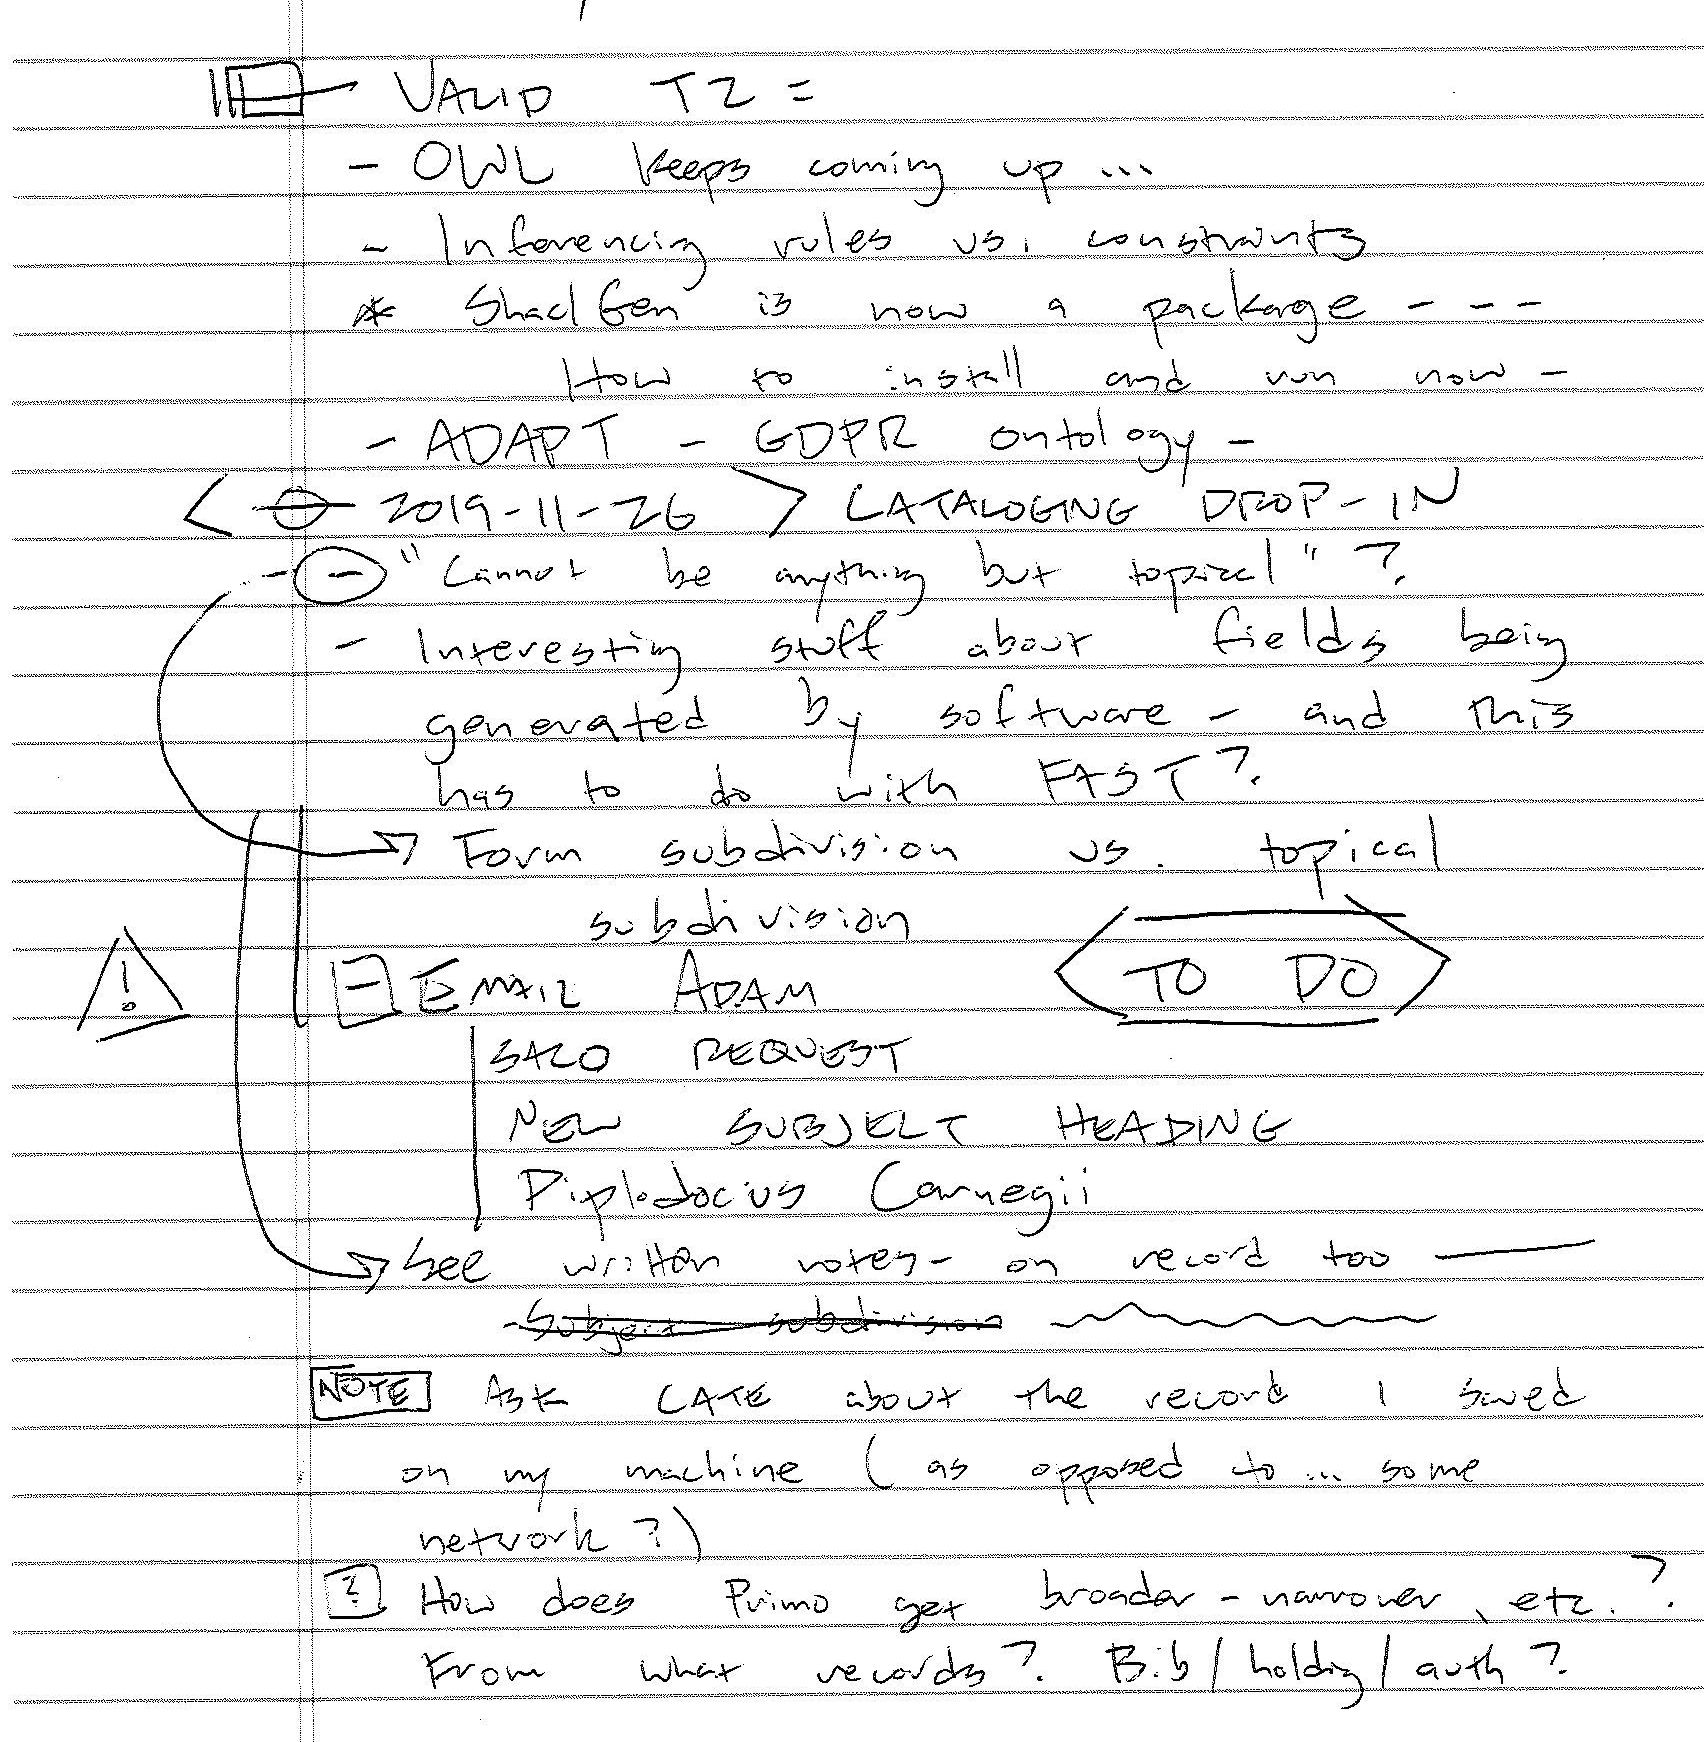 VALID T2 =
- OWL keeps coming up ...
- Inferencing rules vs. constraints
* ShaclGen is now a package - - -
How to install and run now -
- ADAPT - GDPR ontology -
< 2019-11-26 > CATALOGING DROP-IN
- "Cannot be anything but topical"?
- Interesting stuff about fields being
generated by software - and this
has to do with FAST?
Form subdivision vs. topical
subdivision
EMAIL ADAM
TO DO
SACO REQUEST
NEW SUBJECT HEADING
Diplodocius Carnegii
See written notes - on record too
Subject subdivision
NOTE ASK CATE about the record I saved
on my machine (as opposed to ... some
network?)
? How does Primo get broader - narrower, etc.?
From what records? Bib/holding/auth?